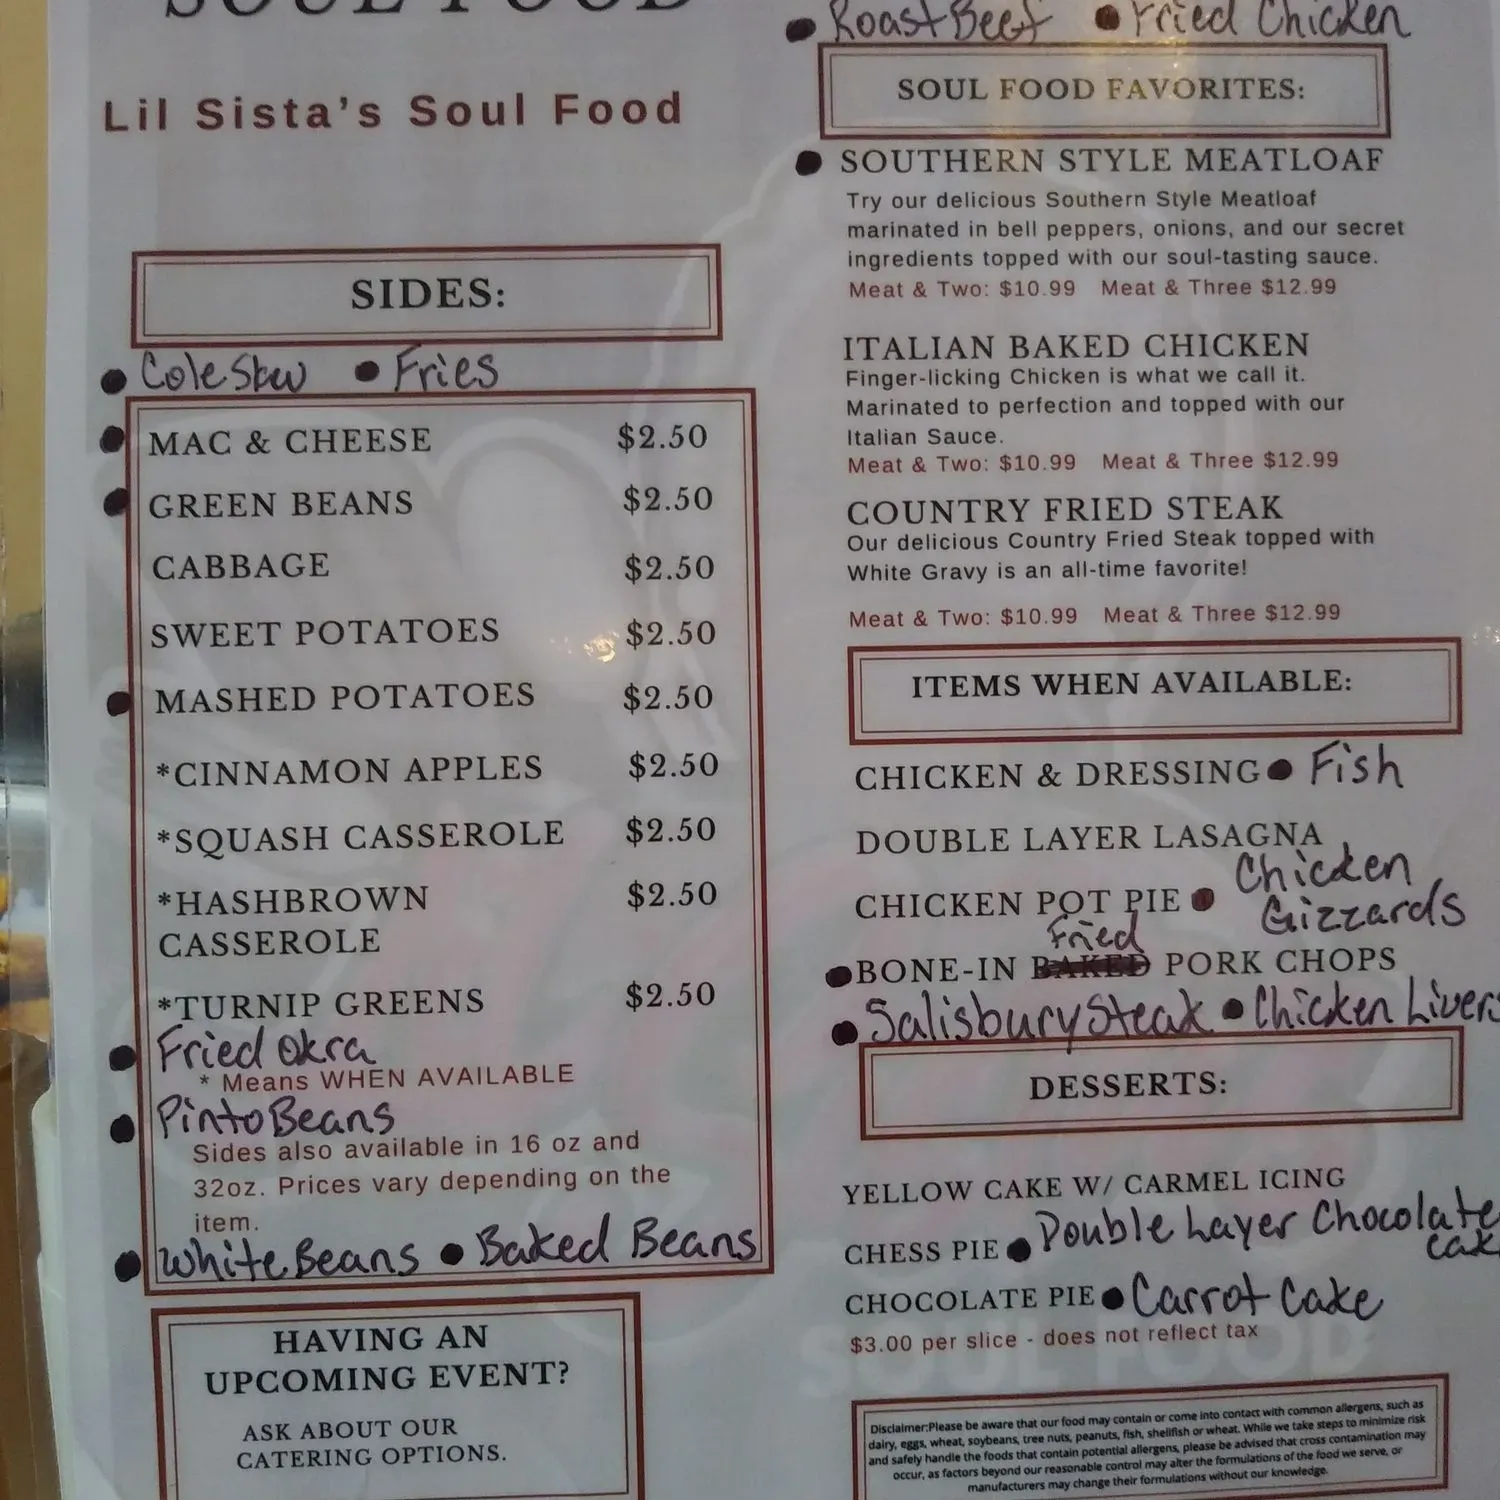 SOUL FOOD
Lil Sista's Soul Food
SIDES:
• Coleslaw • Fries
• MAC & CHEESE $2.50
• GREEN BEANS $2.50
CABBAGE $2.50
SWEET POTATOES $2.50
• MASHED POTATOES $2.50
*CINNAMON APPLES $2.50
*SQUASH CASSEROLE $2.50
*HASHBROWN $2.50
CASSEROLE
*TURNIP GREENS $2.50
• Fried Okra
* Means WHEN AVAILABLE
• Pinto Beans
Sides also available in 16 oz and
32oz. Prices vary depending on the
item.
• White Beans • Baked Beans
HAVING AN
UPCOMING EVENT?
ASK ABOUT OUR
CATERING OPTIONS.
• Roast Beef • Fried Chicken
SOUL FOOD FAVORITES:
• SOUTHERN STYLE MEATLOAF
Try our delicious Southern Style Meatloaf
marinated in bell peppers, onions, and our secret
ingredients topped with our soul-tasting sauce.
Meat & Two: $10.99 Meat & Three $12.99
ITALIAN BAKED CHICKEN
Finger-licking Chicken is what we call it.
Marinated to perfection and topped with our
Italian Sauce.
Meat & Two: $10.99 Meat & Three $12.99
COUNTRY FRIED STEAK
Our delicious Country Fried Steak topped with
White Gravy is an all-time favorite!
Meat & Two: $10.99 Meat & Three $12.99
ITEMS WHEN AVAILABLE:
CHICKEN & DRESSING • Fish
DOUBLE LAYER LASAGNA
CHICKEN POT PIE • Chicken
Gizzards
Fried
• BONE-IN BAKED PORK CHOPS
• Salisbury Steak • Chicken Livers
DESSERTS:
YELLOW CAKE W/ CARMEL ICING
CHESS PIE • Double Layer Chocolate
Cake
CHOCOLATE PIE • Carrot Cake
$3.00 per slice - does not reflect tax
SOUL FOOD
Disclaimer:Please be aware that our food may contain or come into contact with common allergens, such as
dairy, eggs, wheat, soybeans, tree nuts, peanuts, fish, shellfish or wheat. While we take steps to minimize risk
and safely handle the foods that contain potential allergens, please be advised that cross contamination may
occur, as factors beyond our reasonable control may alter the formulations of the food we serve, or
manufacturers may change their formulations without our knowledge.